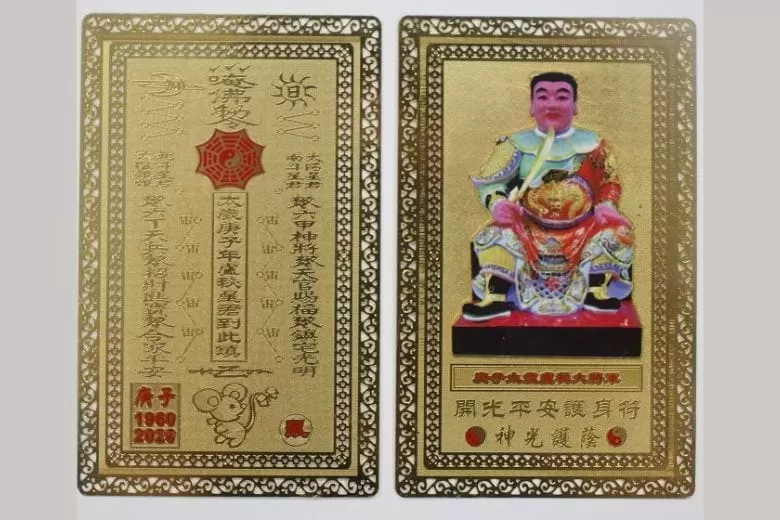 唵佛勅令
太陽星君
南斗星君
北斗星君
太陰星君
六甲神將 天官賜福 鎮宅光明
太歲庚子年盧秘星君到此鎮
六丁天兵 招財進寶 合家平安
庚子
1960
2020
鼠
庚子太歲盧秘大將軍
開光平安護身符
神光護蔭